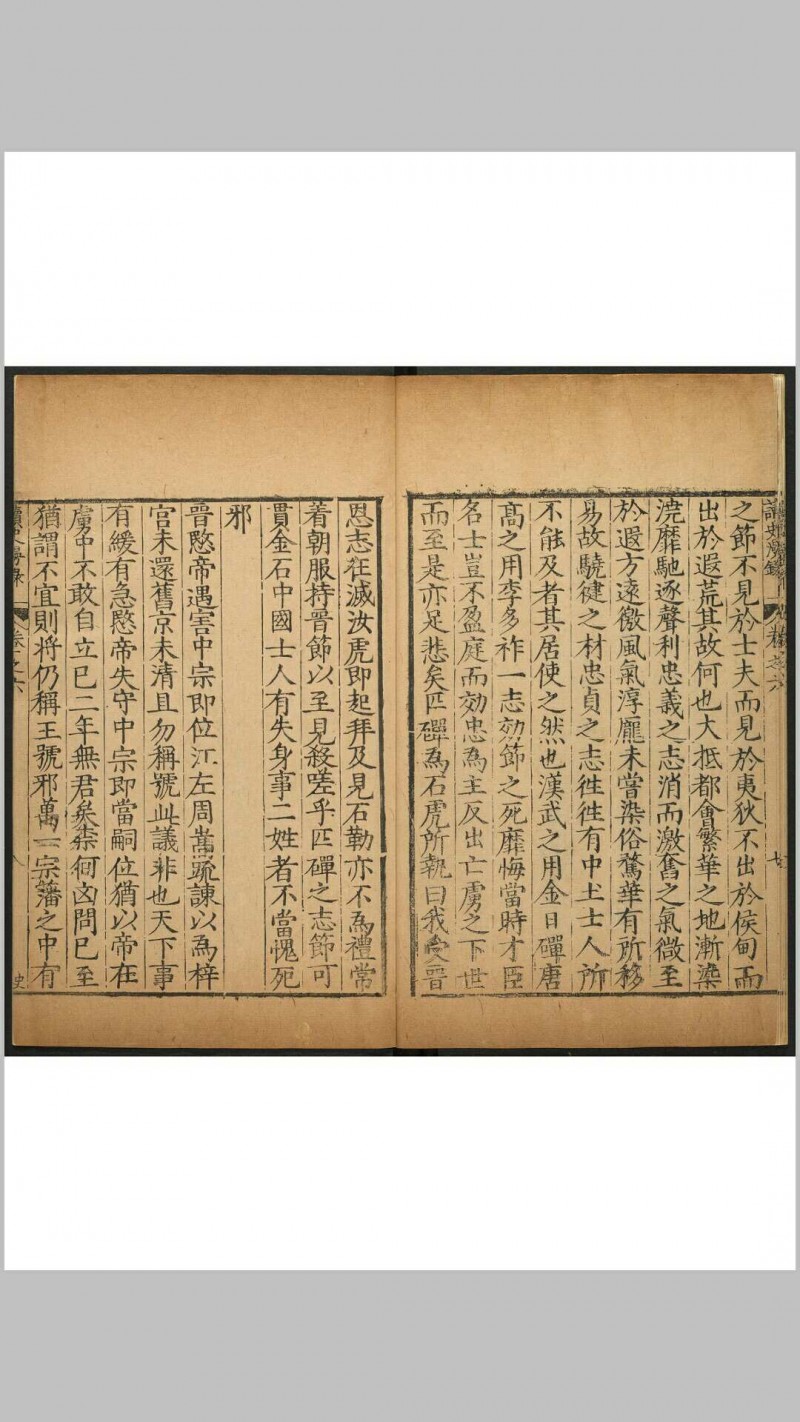 之節不見於士夫而見於夷狄不出於侯甸而
出於遐荒其故何也大抵都會繁華之地漸染
澆靡馳逐聲利忠義之志消而激奮之氣微至
於遐方遠徼風氣淳龐未嘗染俗驁華有所移
易故驍健之材忠貞之志徃徃有中土士人所
不能及者其居使之然也漢武之用金日磾唐
高之用李多祚一志効節之死靡悔當時才臣
名士豈不盈庭而効忠為主反出亡虜之下世
而至是亦足悲矣匹磾為石虎所執曰我受晉
恩志在滅汝虎即起拜及見石勒亦不為禮常
着朝服持晉節以至見殺嗟乎匹磾之志節可
貫金石中國士人有失身事二姓者不當愧死
邪
晉愍帝遇害中宗即位江左周嵩䟽諫以為梓
宮未還舊京未清且勿稱號此議非也天下事
有緩有急愍帝失守中宗即當嗣位猶以帝在
虜中不敢自立已二年無君矣柰何凶問已至
猶謂不宜則將仍稱王號邪萬一宗籓之中有